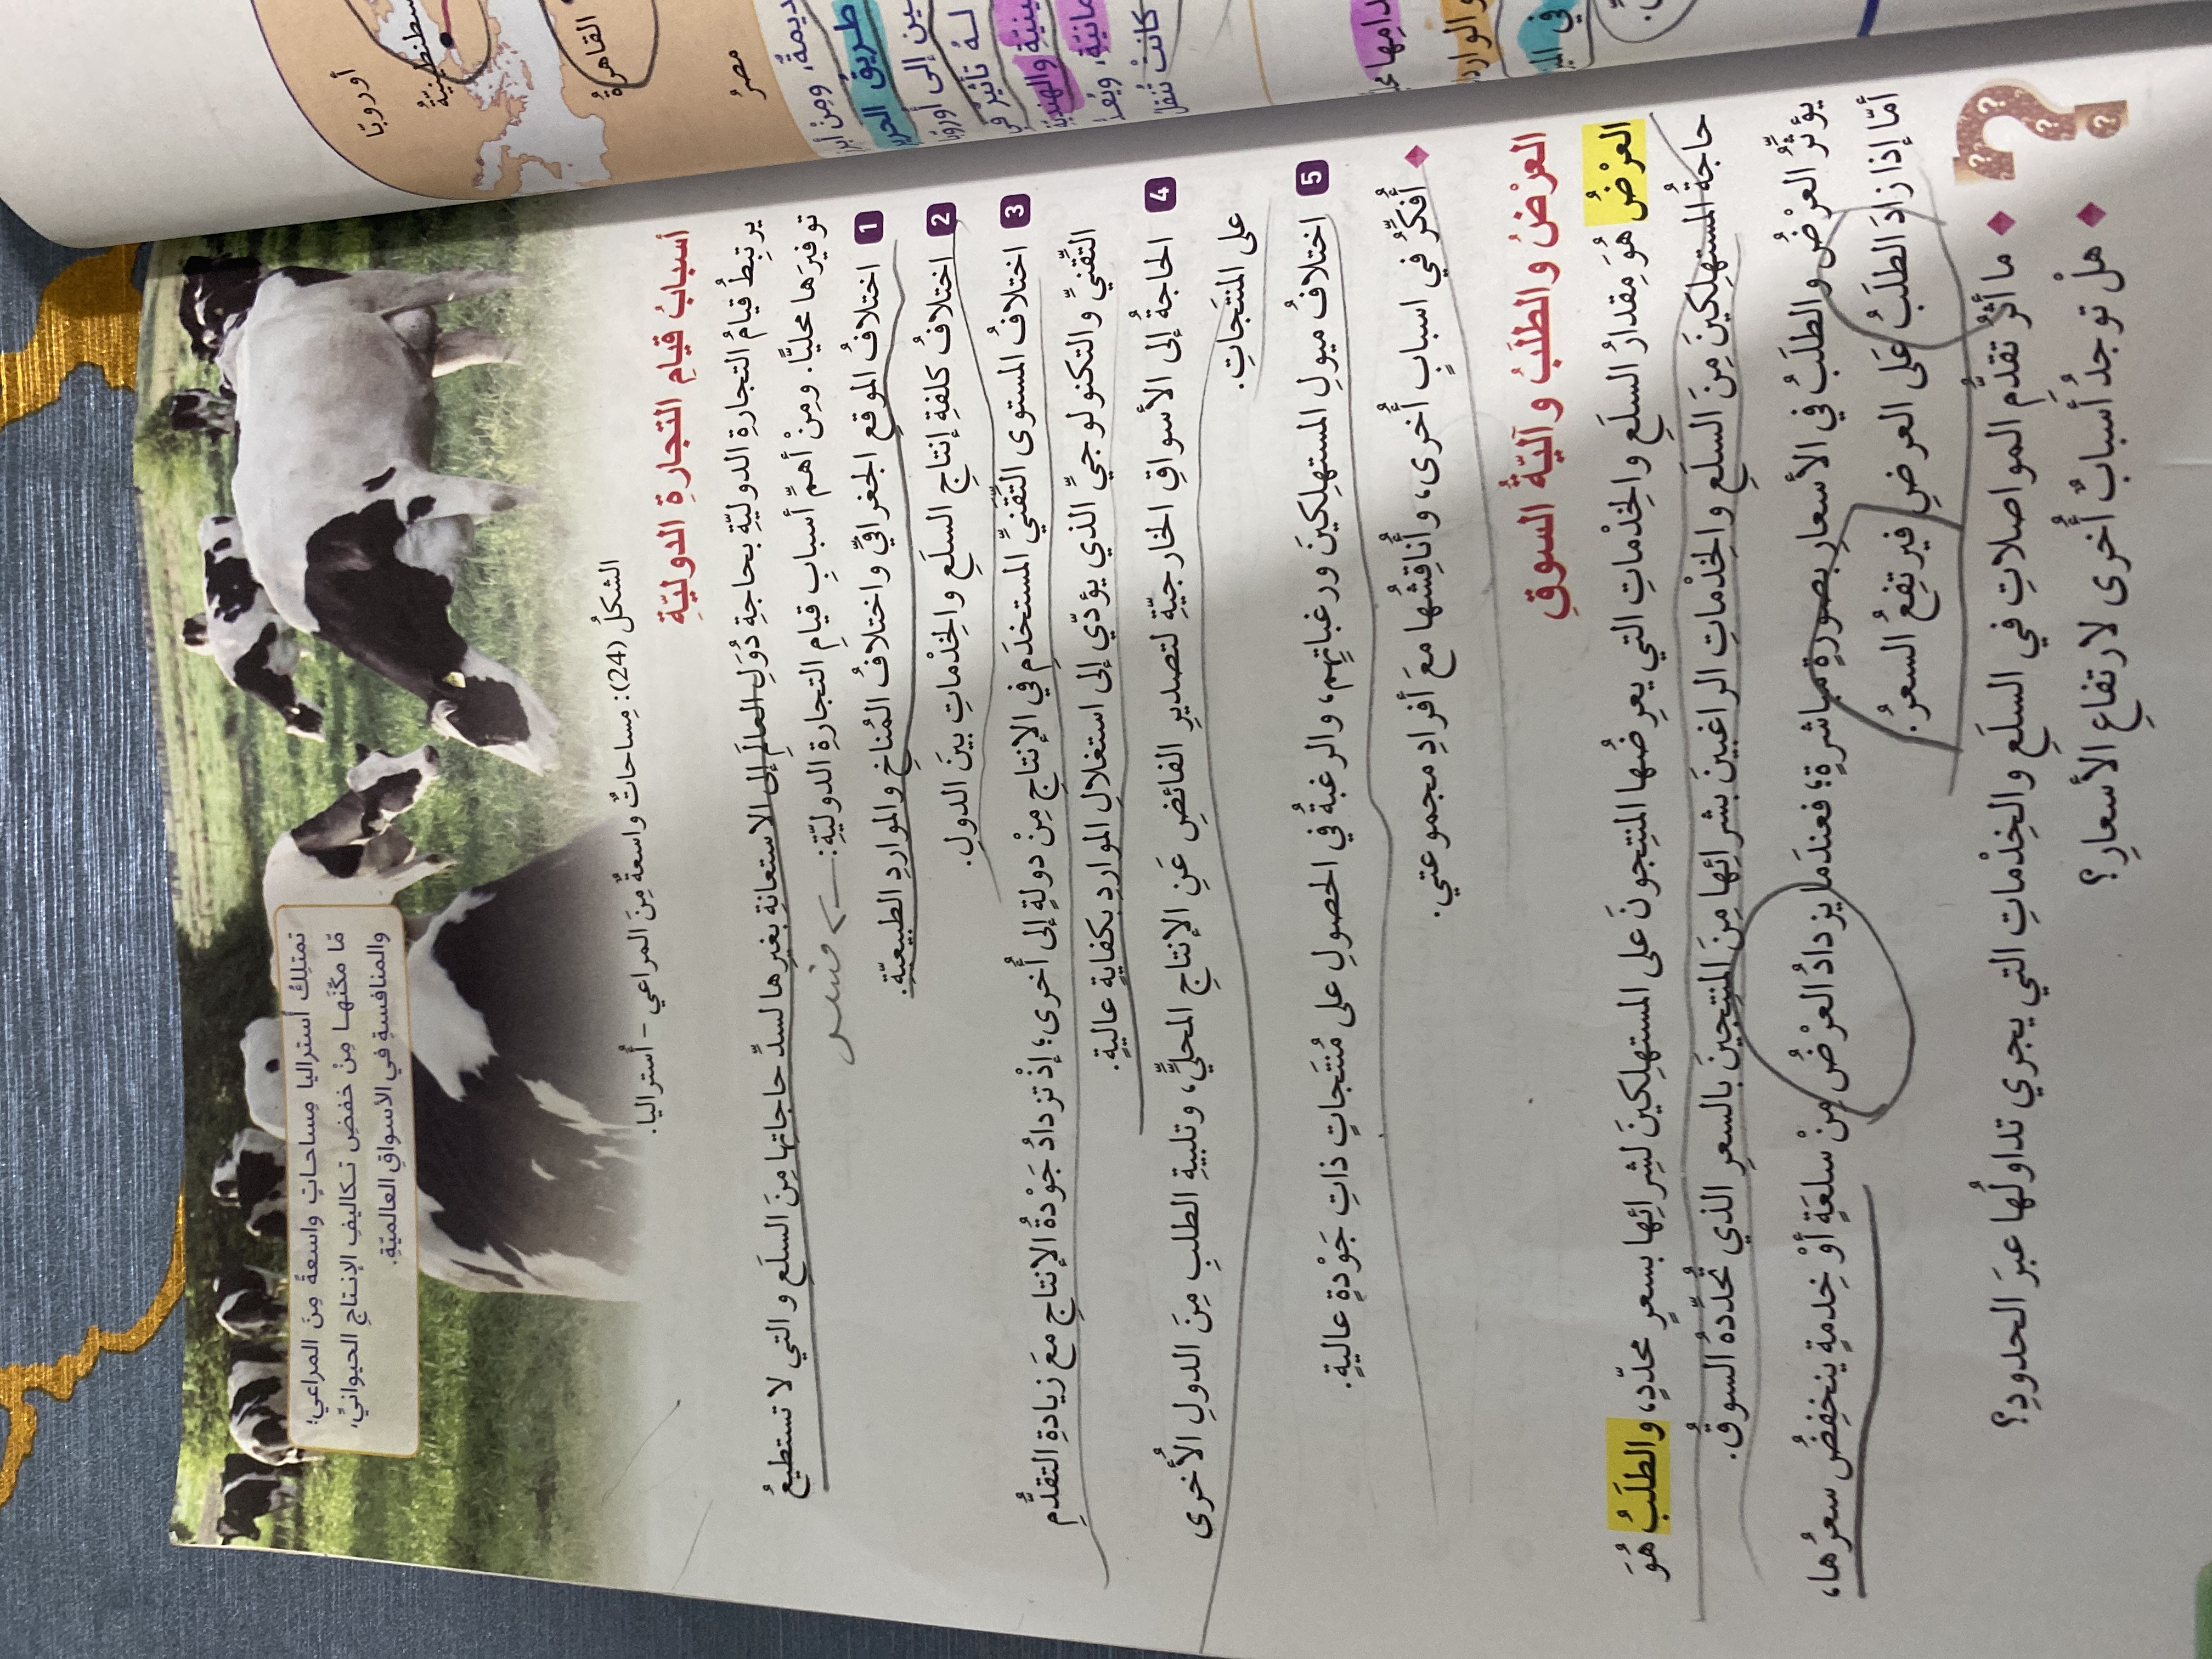 تمتلِكُ أستراليا مِساحاتٍ واسعةً مِنَ المراعي؛
مّا مكَّنَها مِنْ خفضِ تكاليفِ الإنتاجِ الحيوانيِّ،
والمنافسةِ في الأسواقِ العالميّةِ.
الشكلُ (24): مِساحاتٌ واسعةٌ مِنَ المراعي - أُستراليا.
أسبابُ قيامِ التجارةِ الدوليّةِ
يرتبِطُ قيامُ التجارةِ الدوليّةِ بحاجةِ دُوَلِ العالَمِ إلى الاستعانةِ بغيرِها لسدِّ حاجاتِها مِنَ السلَعِ والتي لا تستطيعُ
توفيرَها محليًّا. ومِنْ أهمِّ أسبابِ قيامِ التجارةِ الدوليّةِ:
1 اختلافُ الموقعِ الجغرافيِّ واختلافُ المُناخِ والمواردِ الطبيعيّةِ.
2 اختلافُ كلفةِ إنتاجِ السلَعِ والخِدْماتِ بينَ الدولِ.
3 اختلافُ المستوى التِّقنيِّ المستخدَمِ في الإنتاجِ مِنْ دولةٍ إلى أُخرى؛ إذْ تزدادُ جَوْدةُ الإنتاجِ معَ زيادةِ التقدُّمِ
التِّقنيِّ والتكنولوجيِّ الذي يؤدّي إلى استغلالِ المواردِ بكفايةٍ عاليةٍ.
4 الحاجةُ إلى الأسواقِ الخارجيّةِ لتصديرِ الفائضِ عَنِ الإنتاجِ المحليِّ، وتلبيةِ الطلبِ مِنَ الدولِ الأُخرى
على المنتَجاتِ.
5 اختلافُ ميولِ المستهلِكينَ ورغباتِهِم، والرغبةُ في الحصولِ على مُنتَجاتٍ ذاتِ جَوْدةٍ عاليةٍ.
أُفكِّرُ في اسبابٍ أُخرى، وأُناقِشُها معَ أفرادِ مجموعتي.
العرْضُ والطلَبُ وآليّةُ السوقِ
العرْضُ هُوَ مِقدارُ السلَعِ والخِدْماتِ التي يعرِضُها المنتِجونَ على المستهلِكينَ لشِرائِها بسعرٍ محدّدٍ، والطلَبُ هُوَ
حاجةُ المستهلِكينَ مِنَ السلَعِ والخِدْماتِ الراغبينَ بشرائِها مِنَ المنتِجينَ بالسعرِ الذي تُحدِّدهُ السوقُ.
يؤثِّرُ العرْضُ والطلَبُ في الأسعارِ بصورةٍ مباشرةٍ؛ فعندَما يزدادُ العرْضُ مِنْ سلعَةٍ أوْ خِدمةٍ ينخفِضُ سعرُها،
أمّا إذا زادَ الطلَبُ على العرضِ فيرتفِعُ السعرُ.
ما أثَرُ تقدُّمِ المواصلاتِ في السلَعِ والخِدْماتِ التي يجري تداولُها عبرَ الحدودِ؟
هلْ توجدُ أسبابٌ أُخرى لارتفاعِ الأسعارِ؟
أوروبّا
القاهرةُ
مصرُ